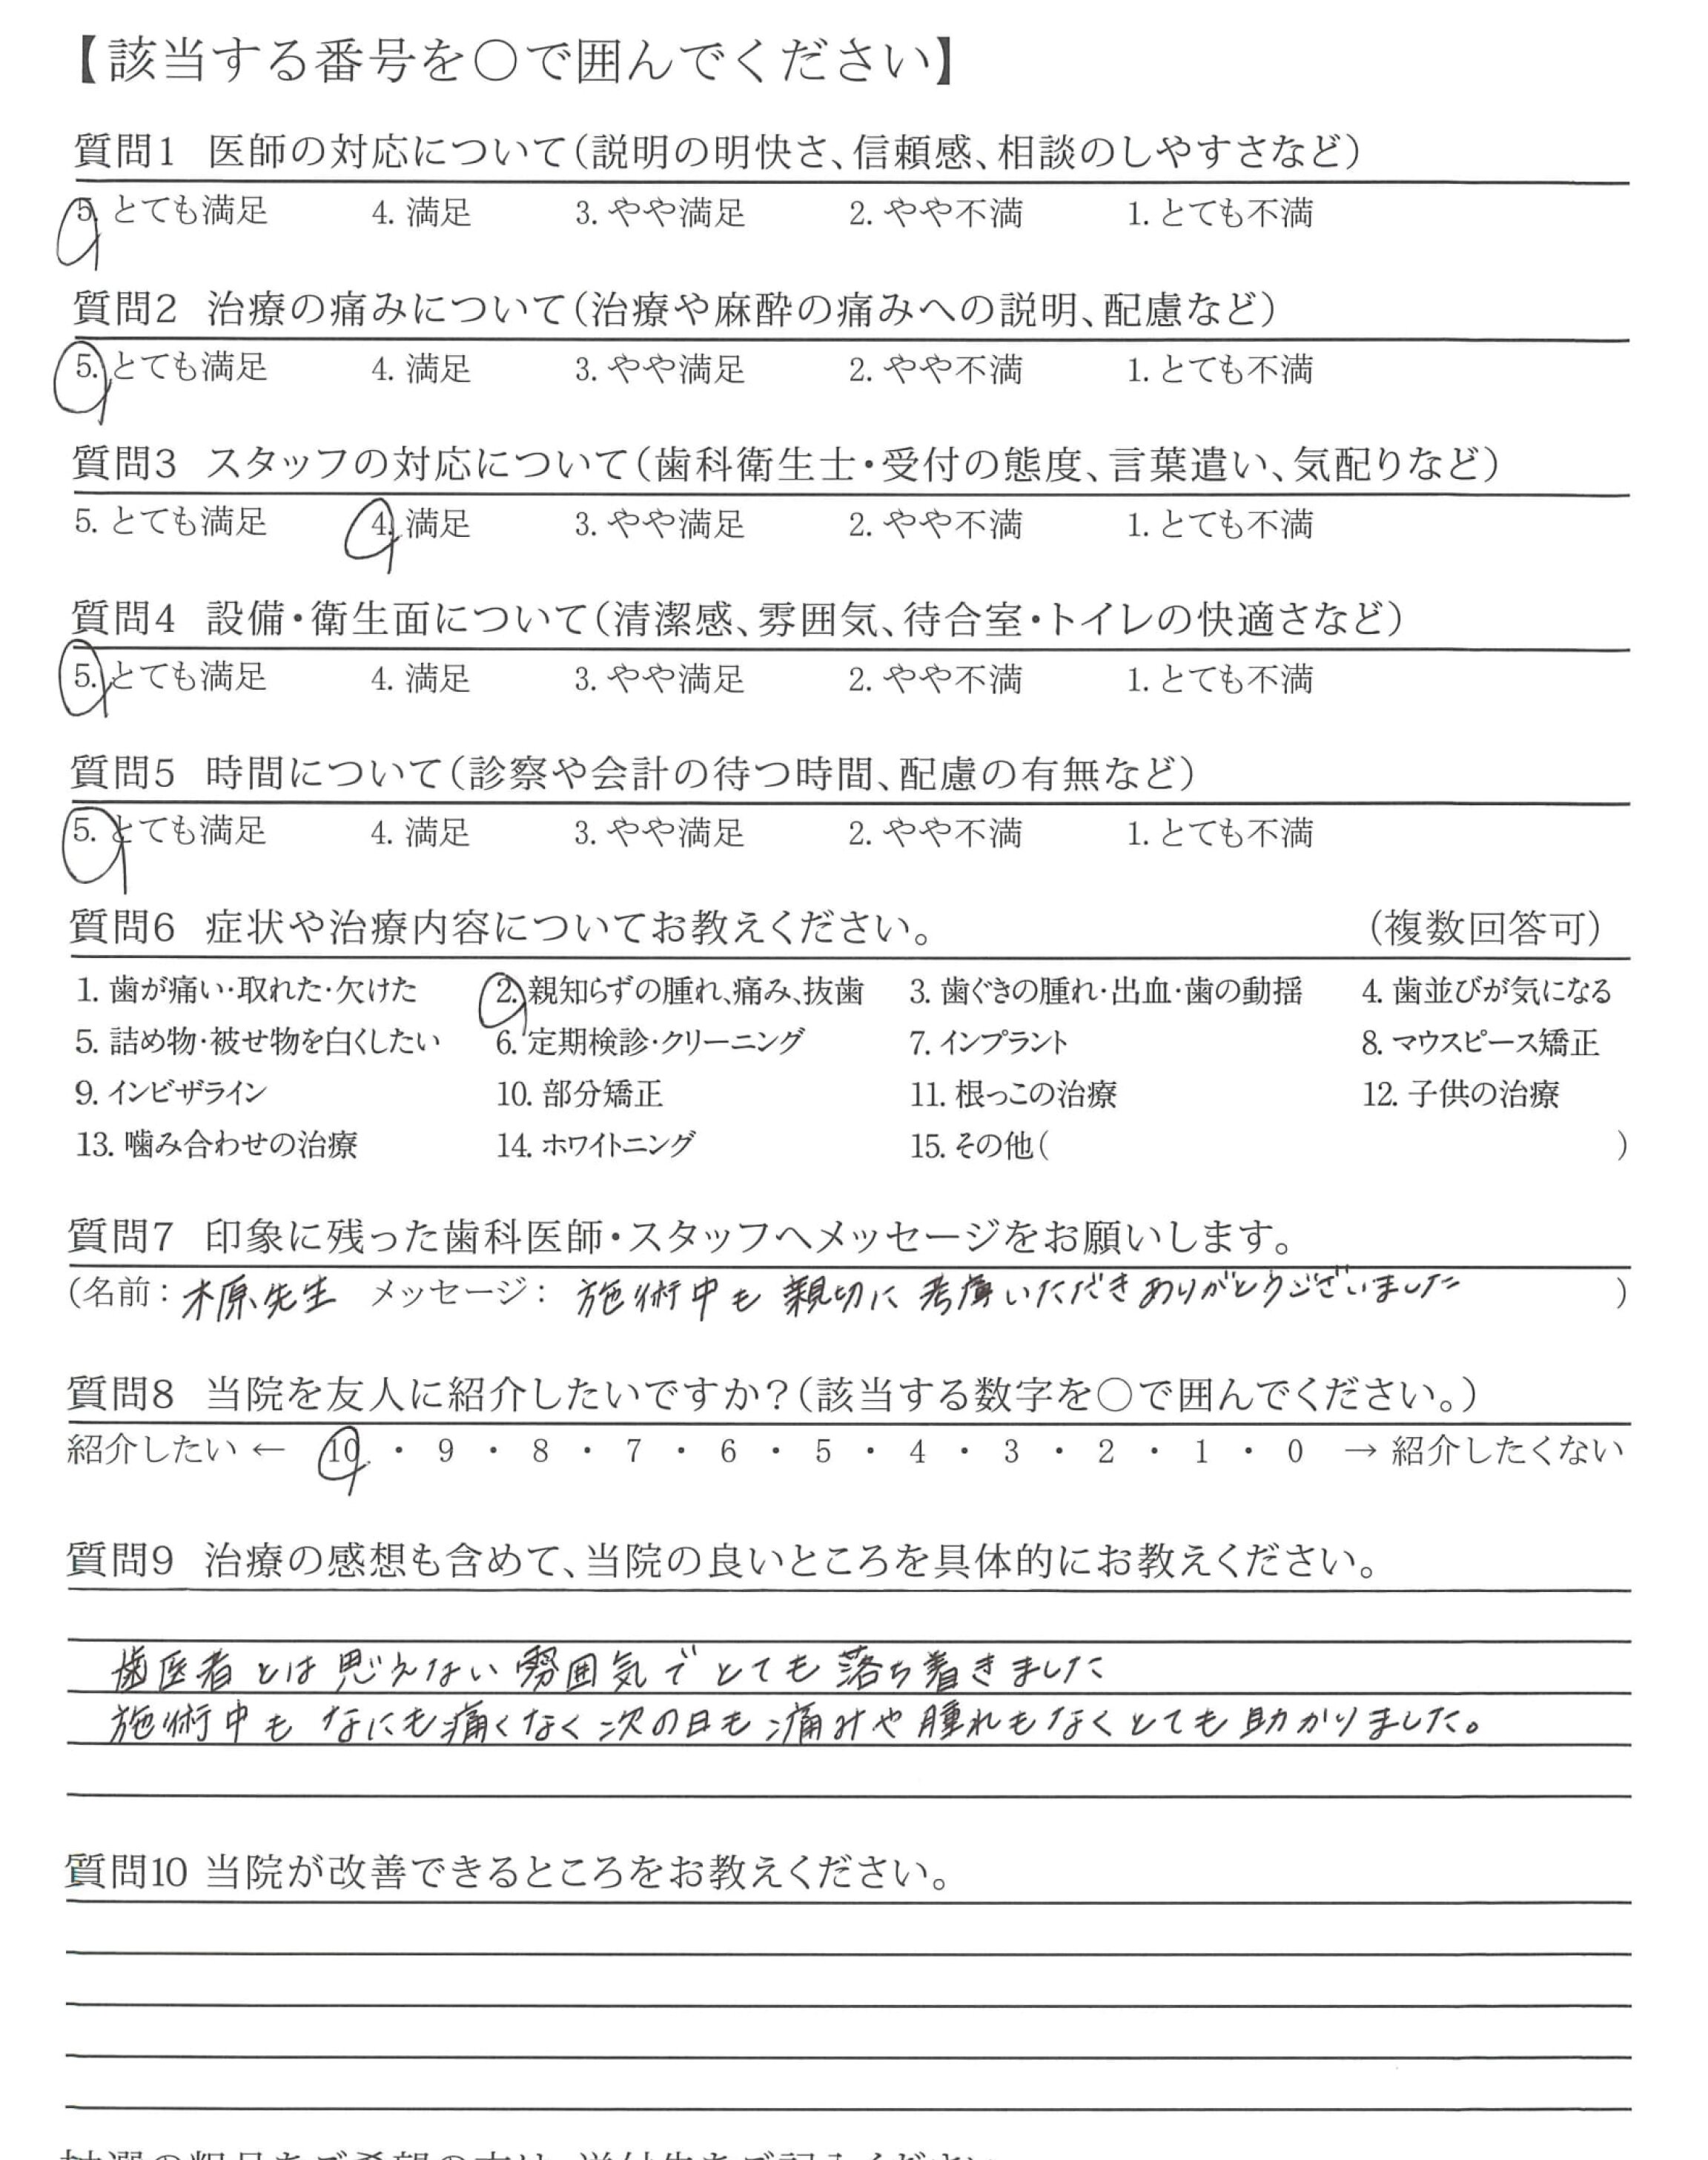 【該当する番号を○で囲んでください】
質問1 医師の対応について(説明の明快さ、信頼感、相談のしやすさなど)
5. とても満足 4. 満足 3. やや満足 2. やや不満 1. とても不満
質問2 治療の痛みについて(治療や麻酔の痛みへの説明、配慮など)
5. とても満足 4. 満足 3. やや満足 2. やや不満 1. とても不満
質問3 スタッフの対応について(歯科衛生士・受付の態度、言葉遣い、気配りなど)
5. とても満足 4. 満足 3. やや満足 2. やや不満 1. とても不満
質問4 設備・衛生面について(清潔感、雰囲気、待合室・トイレの快適さなど)
5. とても満足 4. 満足 3. やや満足 2. やや不満 1. とても不満
質問5 時間について(診察や会計の待つ時間、配慮の有無など)
5. とても満足 4. 満足 3. やや満足 2. やや不満 1. とても不満
質問6 症状や治療内容についてお教えください。 (複数回答可)
1. 歯が痛い・取れた・欠けた 2. 親知らずの腫れ、痛み、抜歯 3. 歯ぐきの腫れ・出血・歯の動揺 4. 歯並びが気になる
5. 詰め物・被せ物を白くしたい 6. 定期検診・クリーニング 7. インプラント 8. マウスピース矯正
9. インビザライン 10. 部分矯正 11. 根っこの治療 12. 子供の治療
13. 噛み合わせの治療 14. ホワイトニング 15. その他( )
質問7 印象に残った歯科医師・スタッフへメッセージをお願いします。
(名前: 木原先生 メッセージ: 施術中も 親切に 考慮いただきありがとうございました )
質問8 当院を友人に紹介したいですか?(該当する数字を○で囲んでください。)
紹介したい ← 10 ・ 9 ・ 8 ・ 7 ・ 6 ・ 5 ・ 4 ・ 3 ・ 2 ・ 1 ・ 0 → 紹介したくない
質問9 治療の感想も含めて、当院の良いところを具体的にお教えください。
歯医者とは思えない雰囲気でとても落ち着きました
施術中も なにも痛くなく次の日も痛みや腫れもなくとても助かりました。
質問10 当院が改善できるところをお教えください。